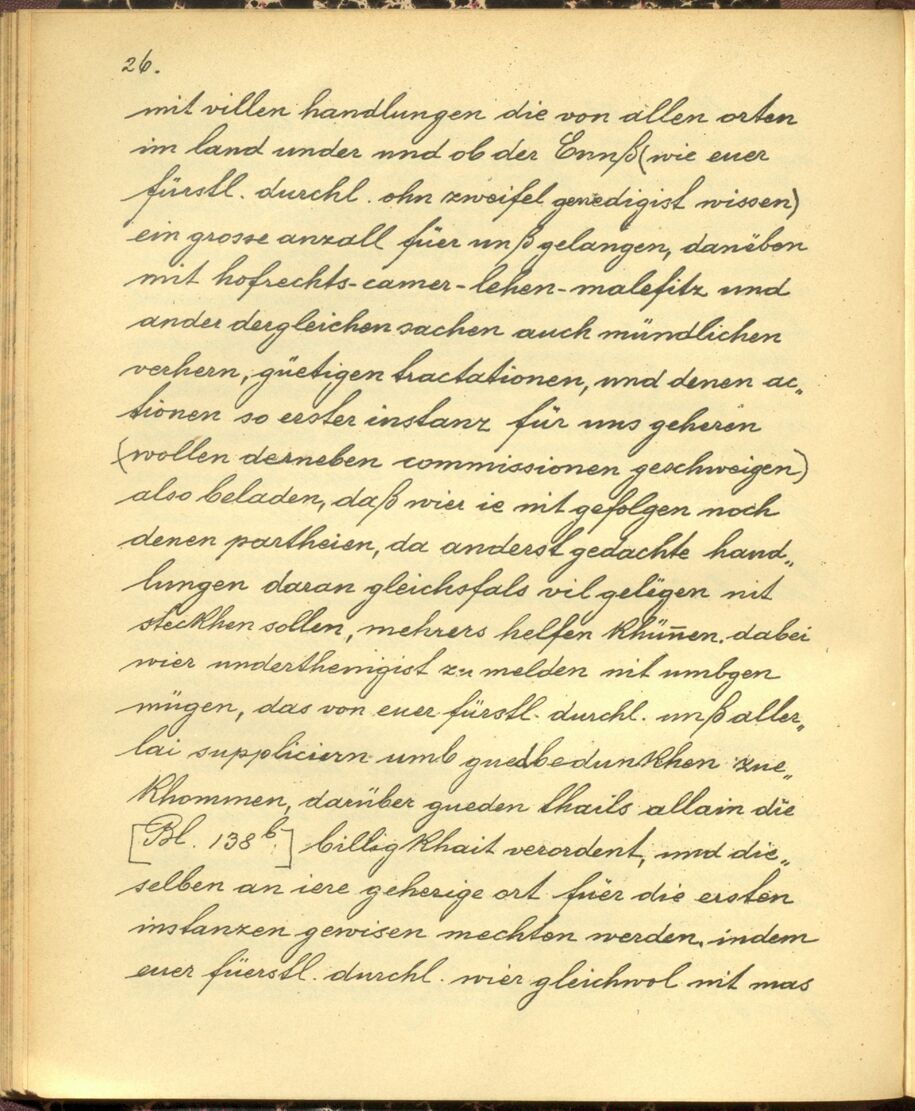 26.
mit villen handlungen die von allen orten
im land under und ob der Ennß (wie euer
fürstl. durchl. ohn zweifel genedigist wissen)
ein grosse anzall füer unß gelangen, danëben
mit hofrechts-camer-lehen-malefitz und
ander dergleichen sachen auch mündlichen
verhern, güetigen tractationen, und denen ac„
tionen so erster instanz für uns geheren
(wollen derneben commissionen geschweigen)
also beladen, daß wier ie nit gefolgen noch
denen partheien, da anderst gedachte hand„
lungen daran gleichsfals vil gelëgen nit
steckhen sollen, mehrers helfen khün̄en. dabei
wier underthenigist zu melden nit umbgen
mügen, das von euer fürstl. durchl. unß aller„
lai suppliciern umb guedbedunkhen zue„
khommen, darüber gueden thails allain die
[Bl. 138b.] billigkhait verordent, und die„
selben an iere geherige ort füer die ersten
instanzen gewisen mechten werden. indem
euer füerstl. durchl. wier gleichwol nit mas